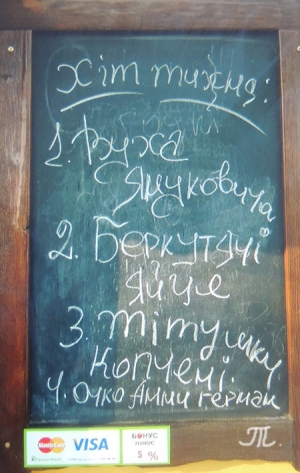 хіт тижня:
1. Вуха
Януковича
2. Беркутячі
яйце
3. Тітушки
копчені.
4. Очко Анни Герман
MasterCard VISA
БОНУС
ПЛЮС
5 %